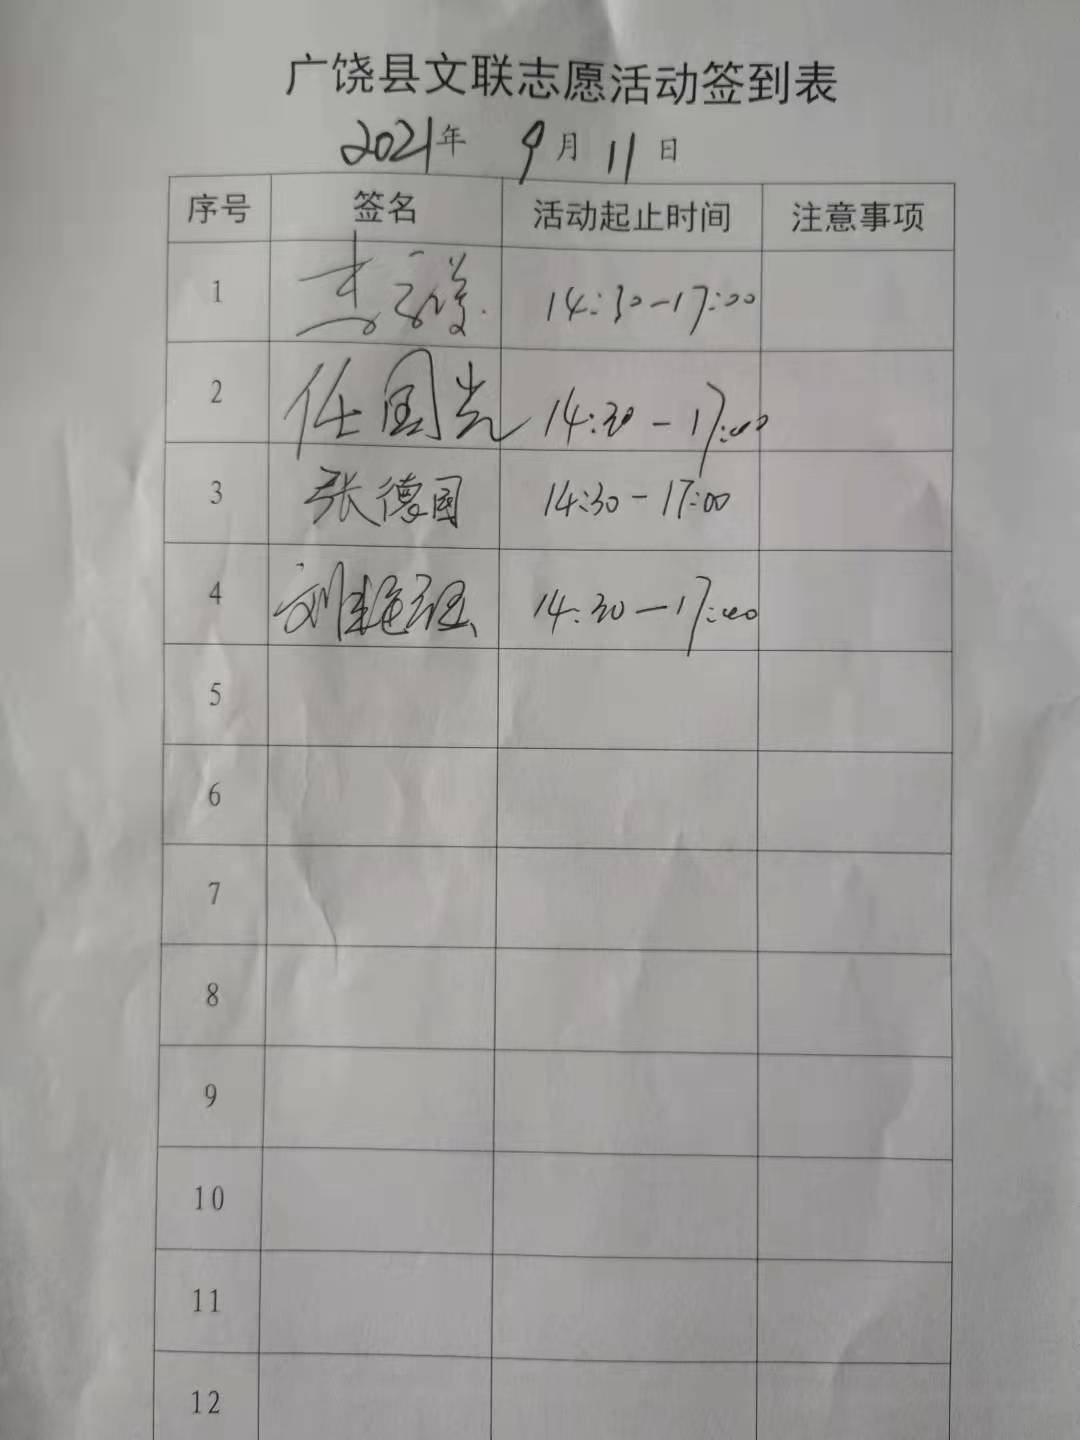 广饶县文联志愿活动签到表
2021年 9月11日
序号 签名 活动起止时间 注意事项
1 14:30-17:00
2 任国光 14:30-17:00
3 张德国 14:30-17:00
4 刘 14:30-17:00
5
6
7
8
9
10
11
12